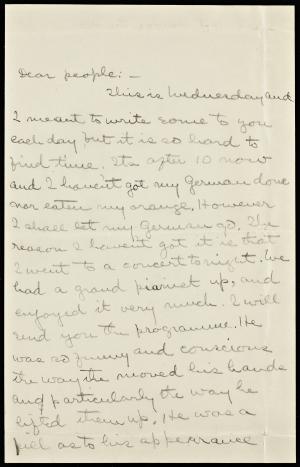 Dear people: —
This is Wednesday and
I meant to write some to you
each day but it is so hard to
find time. Its after 10 now
and I haven't got my German done
nor eaten my orange. However
I shall let my German go. The
reason I haven't got it is that
I went to a concert tonight. We
had a grand pianist up, and
enjoyed it very much. I will
send you the programme. He
was so funny and conscious
the way he moved his hands
and particularly the way he
lifted them up. He was a
pill as to his appearance